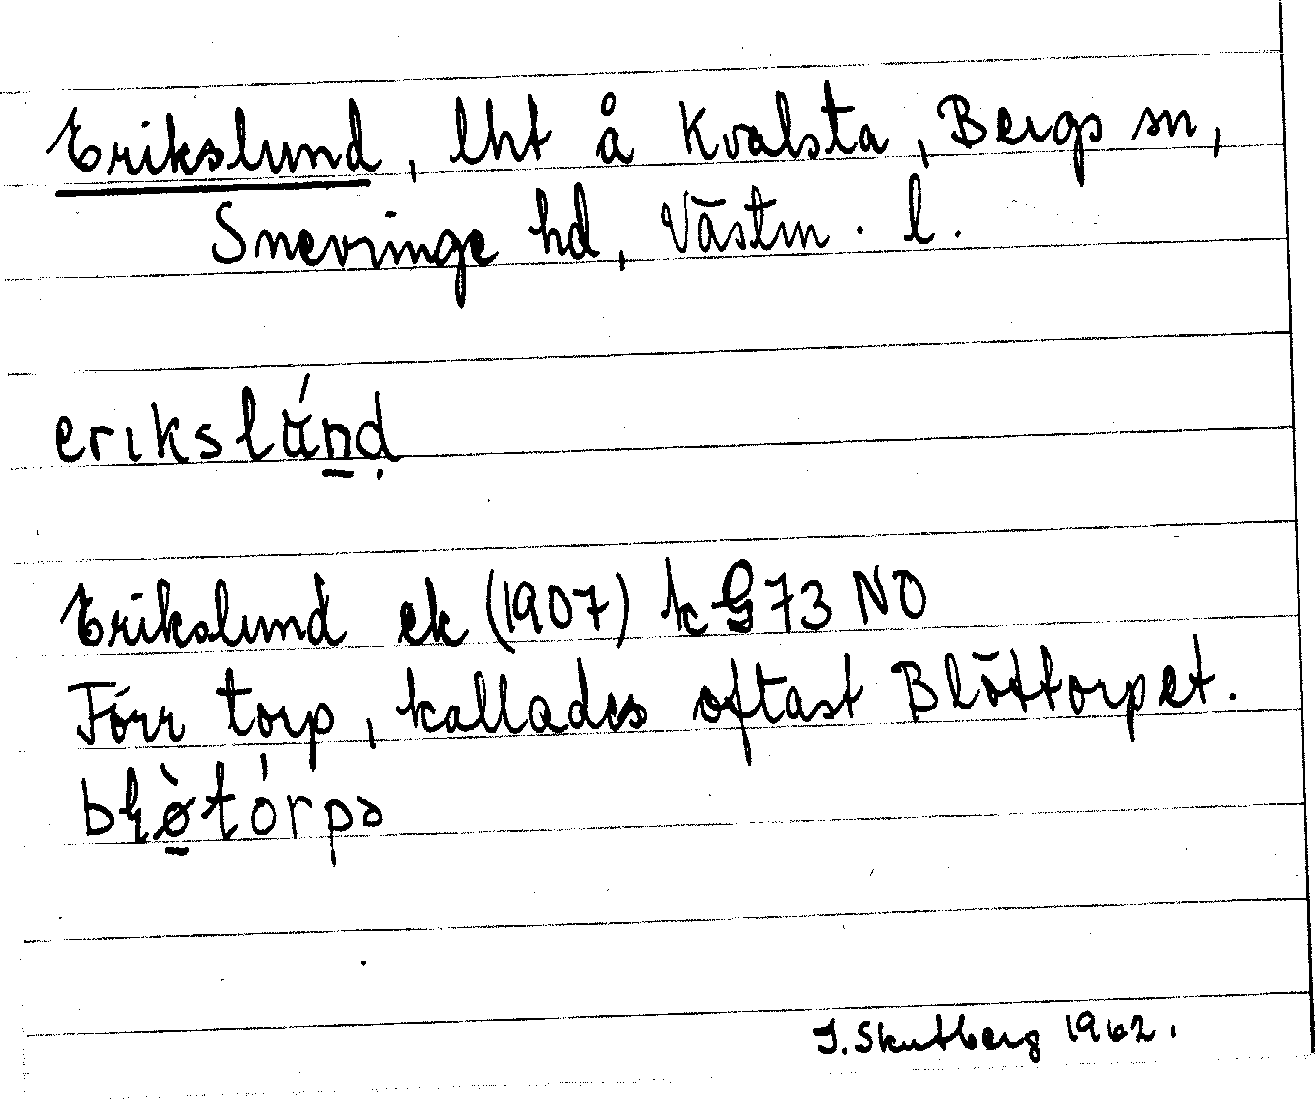 Erikslund, lht å Kvalsta, Bergs sn,
Snevringe hd, Västm. l.
erikslún̲ḍ
Erikslund ek (1907) k G73 NO
Förr torp, kallades oftast Blöttorpet.
bɽø̲̀tórpə
I. Skutberg 1962.